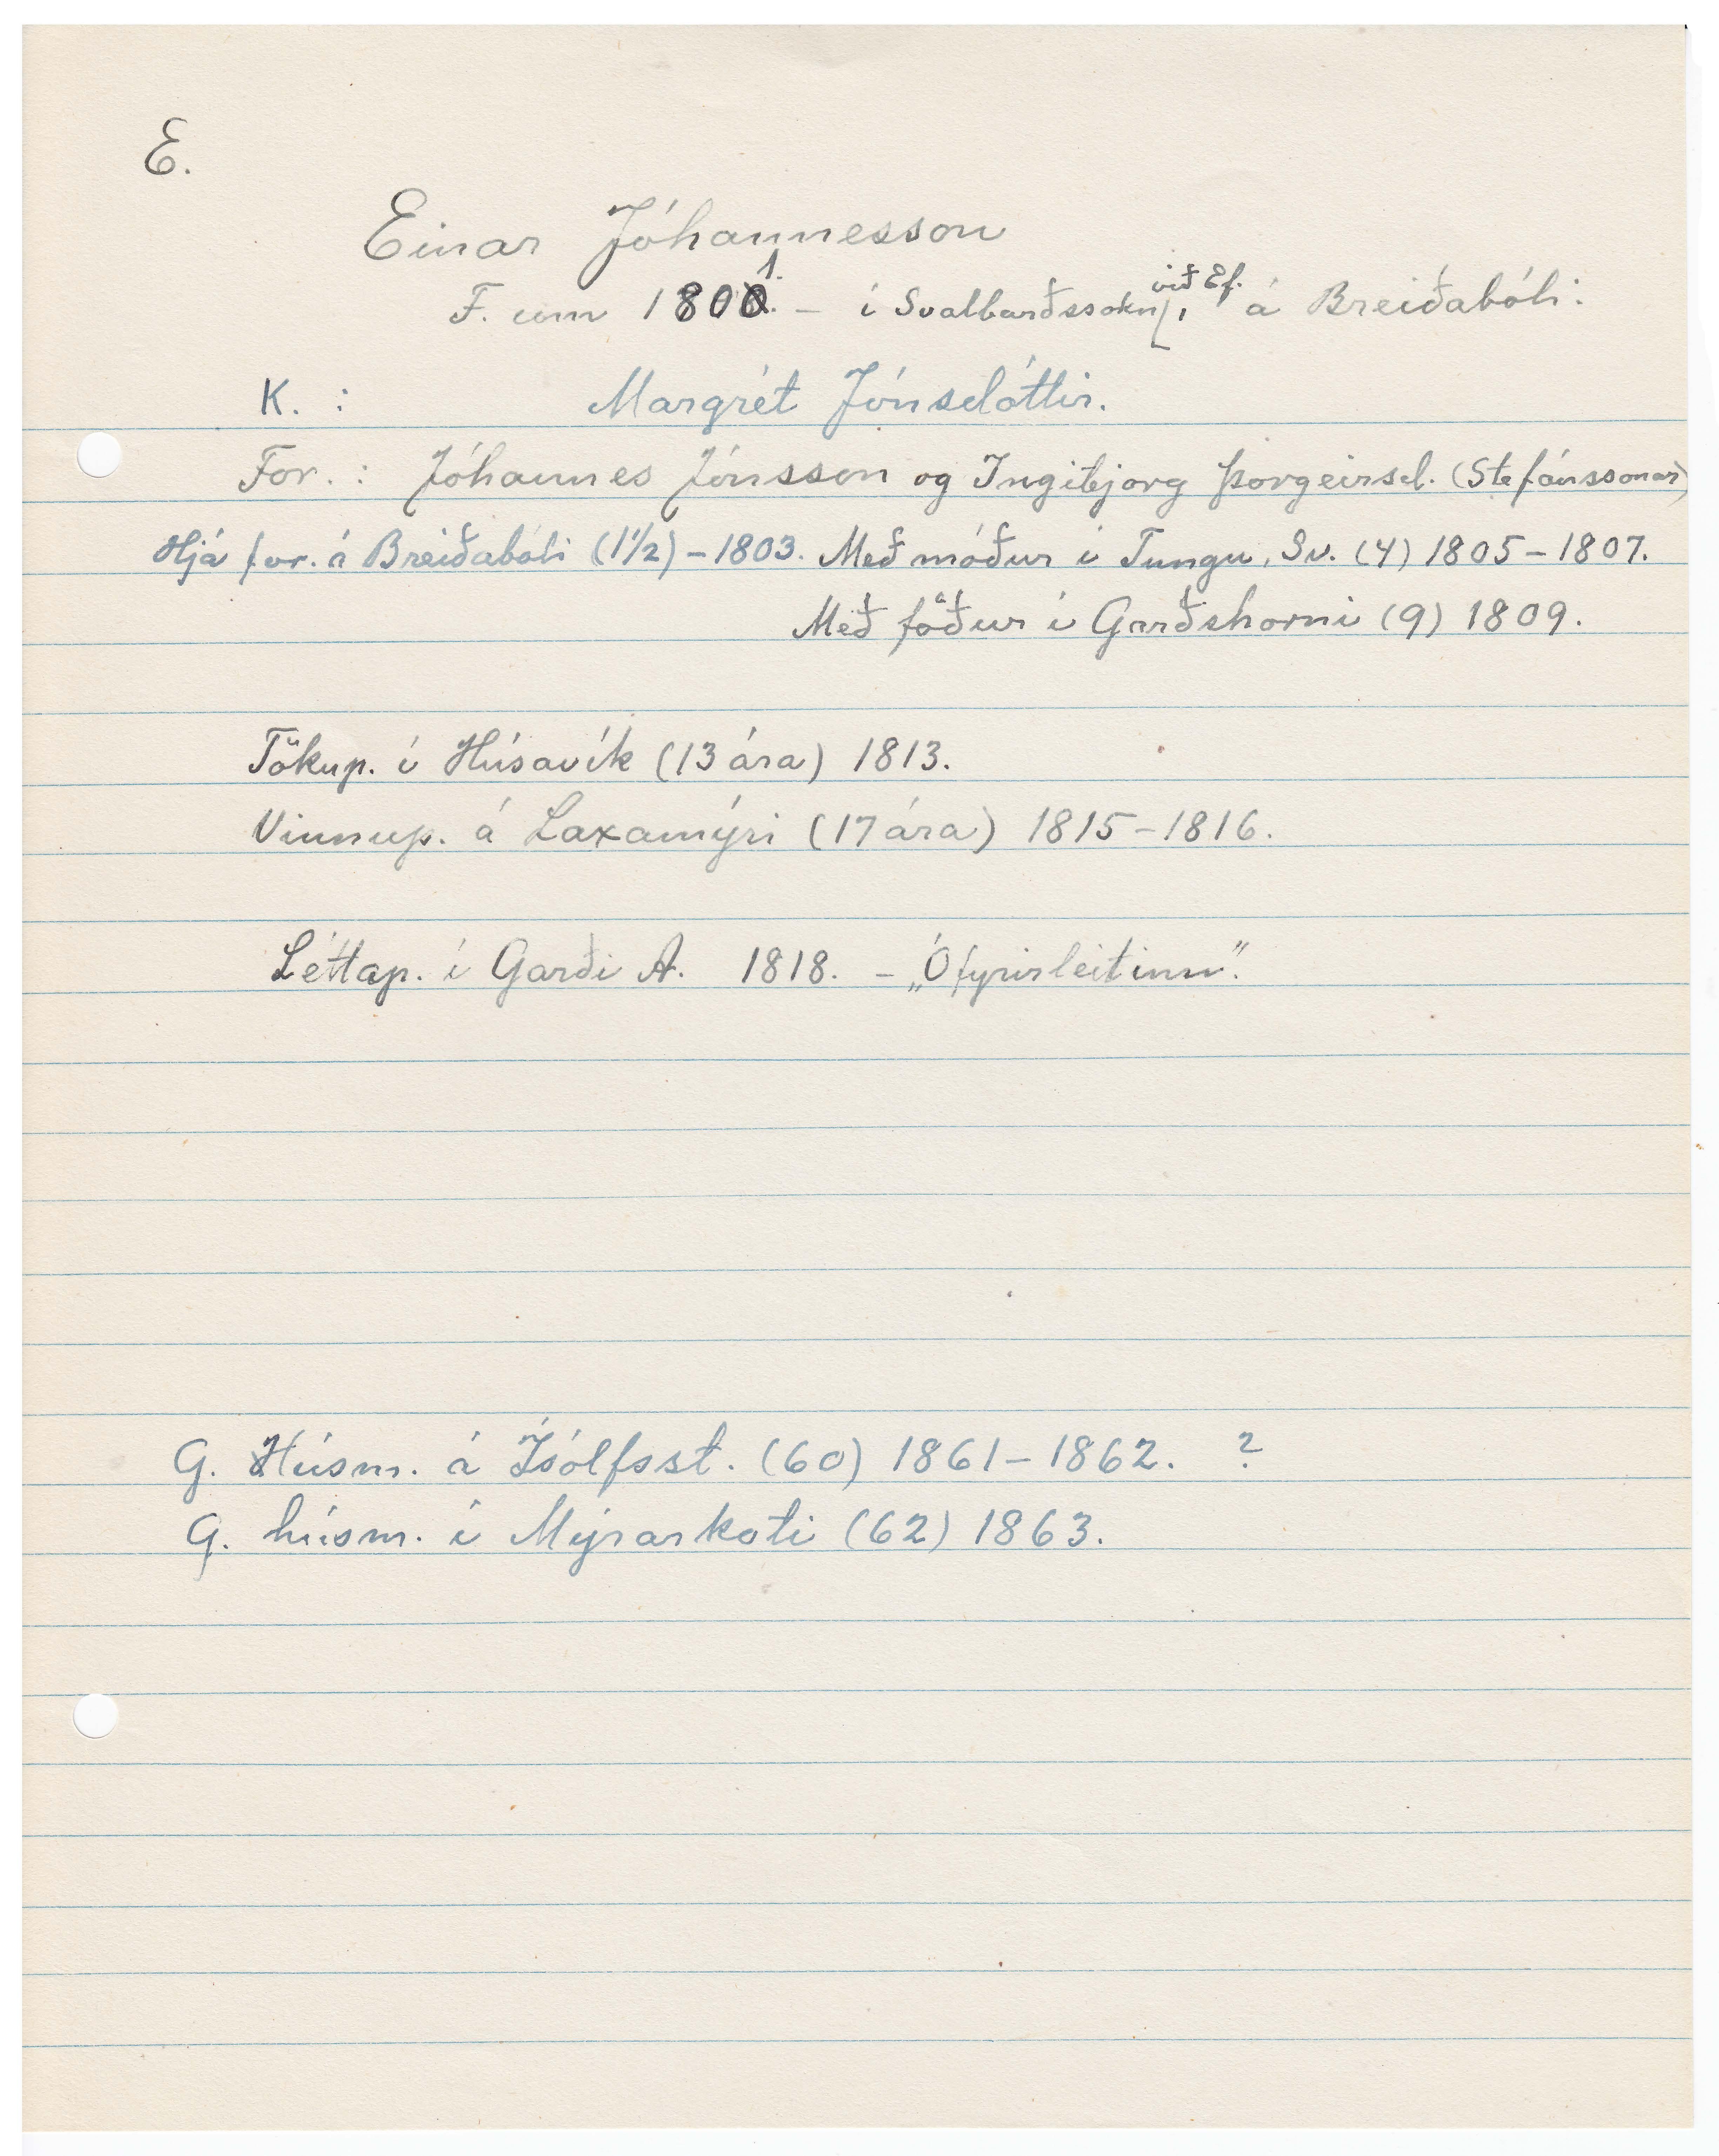 E.
Einar Jóhannesson
F. um 1801. – í Svalbarðssokn, við Ef. á Breiðabóli:
K. : Margrét Jónsdóttir.
For. : Jóhannes Jónsson og Ingibjorg Þorgeirsd. (Stefánssonar)
Hjá for. á Breiðabóli (1 1/2) – 1803. Með móður í Tungu, Sv. (4) 1805 – 1807.
Með föður í Garðshorni (9) 1809.
Tökup. í Húsavík (13 ára) 1813.
Vinnup. á Laxamýri (17 ára) 1815 – 1816.
Léttap. í Garði A. 1818. – „Ófyrirleitinn“.
G. Húsm. á Ísólfsst. (60) 1861 – 1862. ?
G. húsm. í Mýrarkoti (62) 1863.